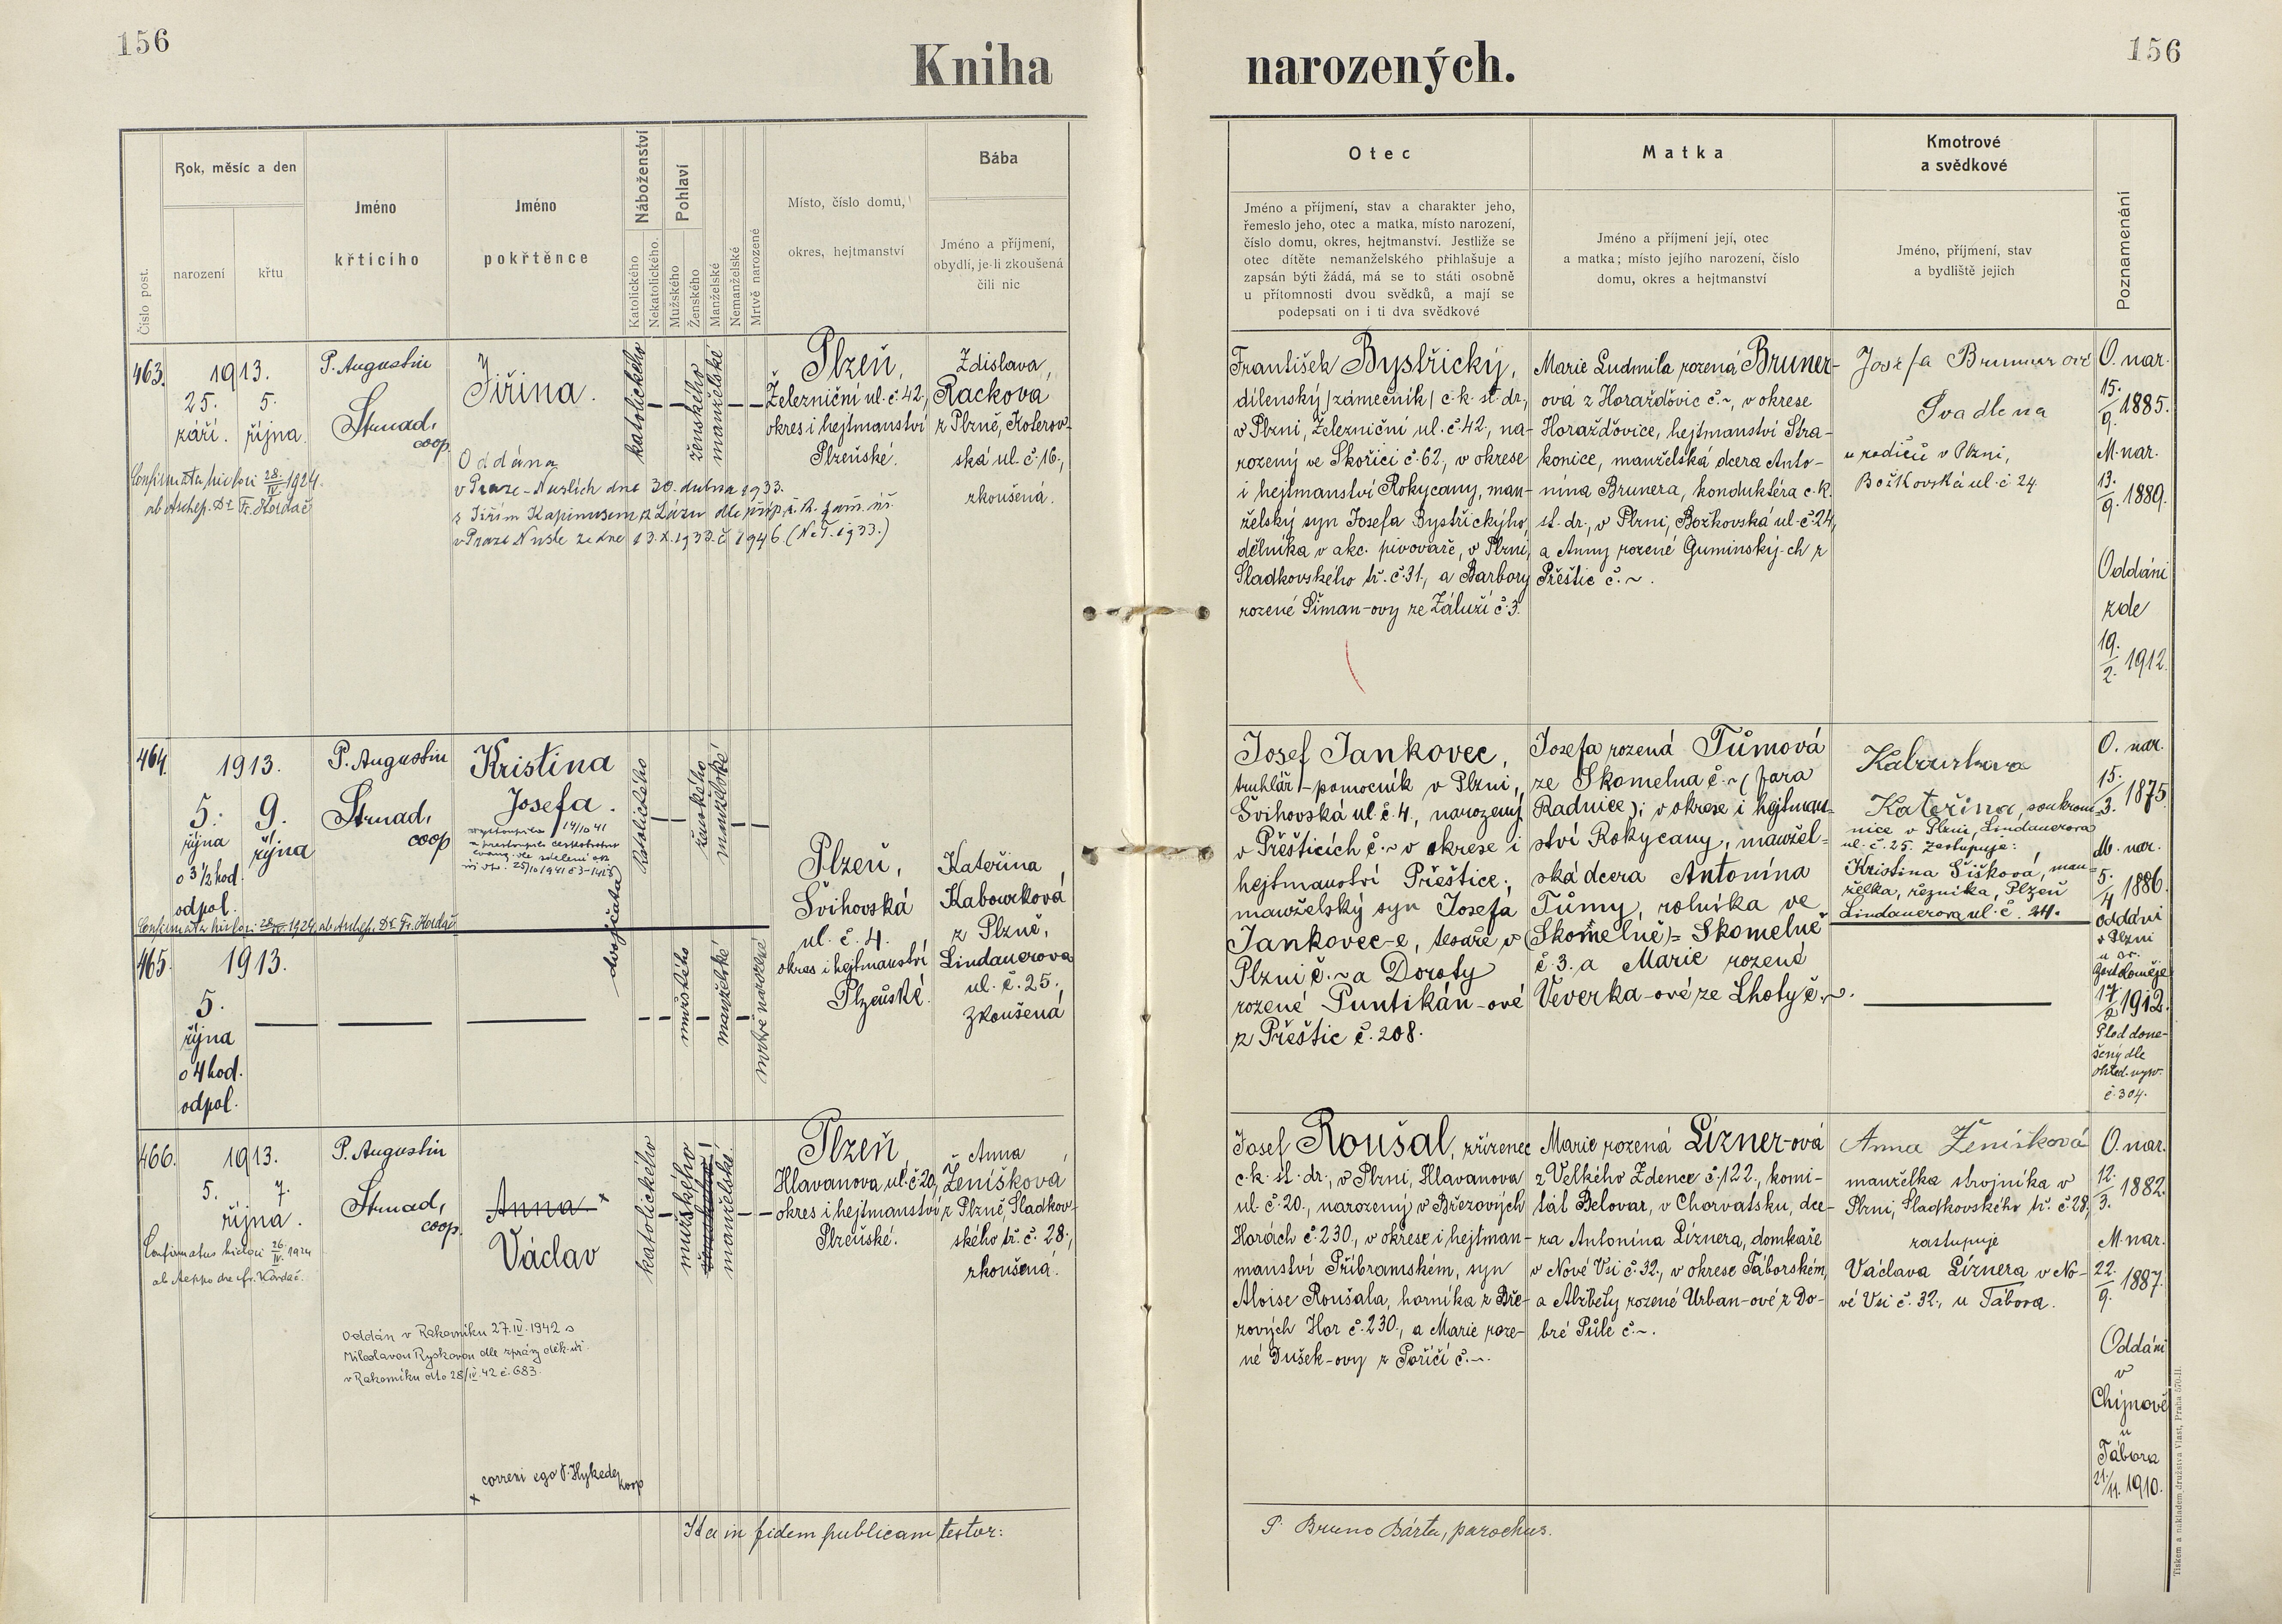 156
Kniha narozených.
156
Číslo post.
Rok, měsíc a den
narození
křtu
Jméno
křtícího
Jméno
pokřtěnce
Náboženství
Katolického
Nekatolického.
Pohlaví
Mužského
Ženského
Manželské
Nemanželské
Mrtvě narozené
Místo, číslo domu,
okres, hejtmanství
Bába
Jméno a příjmení,
obydlí, je-li zkoušená
čili nic
Otec
Jméno a příjmení, stav a charakter jeho,
řemeslo jeho, otec a matka, místo narození,
číslo domu, okres, hejtmanství. Jestliže se
otec dítěte nemanželského přihlašuje a
zapsán býti žádá, má se to státi osobně
u přítomnosti dvou svědků, a mají se
podepsati on i ti dva svědkové
Matka
Jméno a příjmení její, otec
a matka; místo jejího narození, číslo
domu, okres a hejtmanství
Kmotrové
a svědkové
Jméno, příjmení, stav
a bydliště jejich
Poznamenání
463.
1913.
25. 5.
září. října.
Confirmata hic loci 28/IV 1924.
ab Archep. Dr. Fr. Kordač
P. Augustin
Strnad,
coop.
Jiřina.
Oddána
v Praze-Nuslích dne 30. dubna 1933.
s Jiřím Kapinusem z Lázu dle příp. ř. k. farn. úř.
v Praze Nusle ze dne 13.X.1933 č 1946. (N.T. 1933.)
katolického
ženského
manželské
Plzeň,
Železniční ul. č. 42.,
okres i hejtmanství
Plzeňské.
Zdislava
Racková
z Plzně, Koterov-
ská ul. č. 16.,
zkoušená.
František Bystřický,
dílenský /zámečník/ c. k. st. dr.,
v Plzni, Železniční ul. č. 42., na-
rozený ve Skořici č. 62., v okrese
i hejtmanství Rokycany, man-
želský syn Josefa Bystřického,
dělníka v akc. pivovaře, v Plzni,
Sladkovského tř. č. 31., a Barbory
rozené Šiman-ovy ze Záluží č. 3.
Marie Ludmila rozená Bruner-
ová z Horažďovic č. ~, v okrese
Horažďovice, hejtmanství Stra-
konice, manželská dcera Anto-
nína Brunera, konduktéra c. k.
st. dr., v Plzni, Božkovská ul. č. 24,
a Anny rozené Guminský-ch z
Přeštic č. ~.
Josefa Brunnerová
Švadlena
u rodičů v Plzni,
Božkovská ul. č 24
O. nar.
15./9. 1885.
M. nar.
13./9. 1889.
Oddáni
zde
19./2. 1912.
464.
1913.
5. 9.
října října
o 3 1/2 hod.
odpol.
Confirmata hic loci 28/IV 1924, ab Archep. Dr. Fr. Kordač
P. Augustin
Strnad,
coop
Kristina
Josefa.
vystoupila 14/10 41
katolického
ženského
manželské
dvojčata
465.
1913.
5.
října
o 4 hod.
odpol.
mužského
manželské
mrtvě narozené
Plzeň,
Švihovská
ul. č. 4.
okres i hejtmanství
Plzeňské.
Kateřina
Kabourková
z Plzně,
Lindauerova
ul. č. 25.,
zkoušená
Josef Jankovec,
truhlář-pomocník v Plzni,
Švihovská ul. č. 4., narozený
v Přešticích č. ~ v okrese i
hejtmanství Přeštice;
manželský syn Josefa
Jankovec-e, tesaře v
Plzni č. ~ a Doroty
rozené Puntikán-ové
z Přeštic č. 208.
Josefa rozená Tůmová
ze Skomelna č. ~ (fara
Radnice); v okrese i hejtman-
ství Rokycany, manžel-
ská dcera Antonína
Tůmy, rolníka ve
(Skomelně) = Skomelně
č. 3. a Marie rozená
Veverka-ové ze Lhoty č. ~.
Kabourkova
Kateřina, soukrom-
nice v Plzni, Lindauerova
ul. č. 25. zastupuje:
Kristina Šišková, man-
želka, řezníka, Plzeň
Lindauerova ul. č. 24.
O. nar.
15./3. 1875
M. nar.
5./4 1886.
Oddáni
v Plzni
u sv.
Bartoloměje
17/2 1912.
Plod dono-
šený dle
ohled. vysv.
č. 304.
466.
1913.
5. 7.
října.
Confirmatus hic loci 26./IV. 1924
ab Aeppo dre Fr. Kordač.
P. Augustin
Strnad,
coop.
Anna +
Václav
Oddán v Rakovníku 27.IV.1942 s
Miloslavou Ryskovou dle zprávy děk. úř.
v Rakovníku dto 28/IV. 42 č. 683.
+ correxi ego P. Hykeda
koop
katolického
mužského
manželské.
Plzeň,
Hlavanova ul. č. 20,
okres i hejtmanství
Plzeňské.
Anna
Ženíšková
z Plzně, Sladkov-
ského tř. č. 28.,
zkoušená.
Josef Roušal, zřízenec
c. k. st. dr., v Plzni, Hlavanova
ul. č. 20., narozený v Březových
Horách č. 230., v okrese i hejtman-
manství Příbramském, syn
Aloise Roušala, horníka z Bře-
zových Hor č. 230., a Marie roze-
né Dušek-ovy z Poříčí č. ~.
Marie rozená Lízner-ová
z Velkého Zdence č. 122., komi-
tát Belovar, v Chorvatsku, dce-
ra Antonína Líznera, domkaře
v Nové Vsi č. 32., v okrese Táborském,
a Alžbety rozené Urban-ové z Do-
bré Půle č. ~.
Anna Ženíšková
manželka strojníka v
Plzni, Sladkovského tř. č. 28,
zastupuje
Václava Líznera v No-
vé Vsi č. 32., u Tábora.
O. nar.
12./3. 1882.
M. nar.
22./9. 1887.
Oddáni
v
Chýnově
u
Tábora
21./11. 1910.
Ita in fidem publicam testor:
P. Bruno Bárta, parochus.
Tiskem a nákladem družstva Vlast, Praha 570-II.